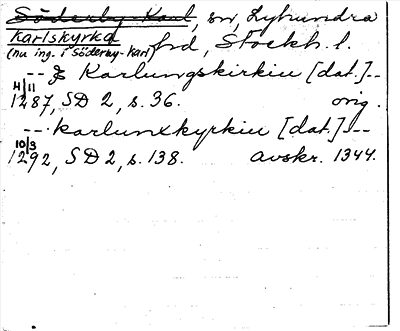 Söderby-Karl, sn, Lyhundra
Karlskyrka
(nu ing. i Söderby-Karl) hd, Stockh. l.
-- Karlungskirkiu [dat.] --
4/11
1287, SD 2, s. 36. orig.
-- karlunxkyrkiu [dat.] --
10/3
1292, SD 2, s. 138. avskr. 1344.